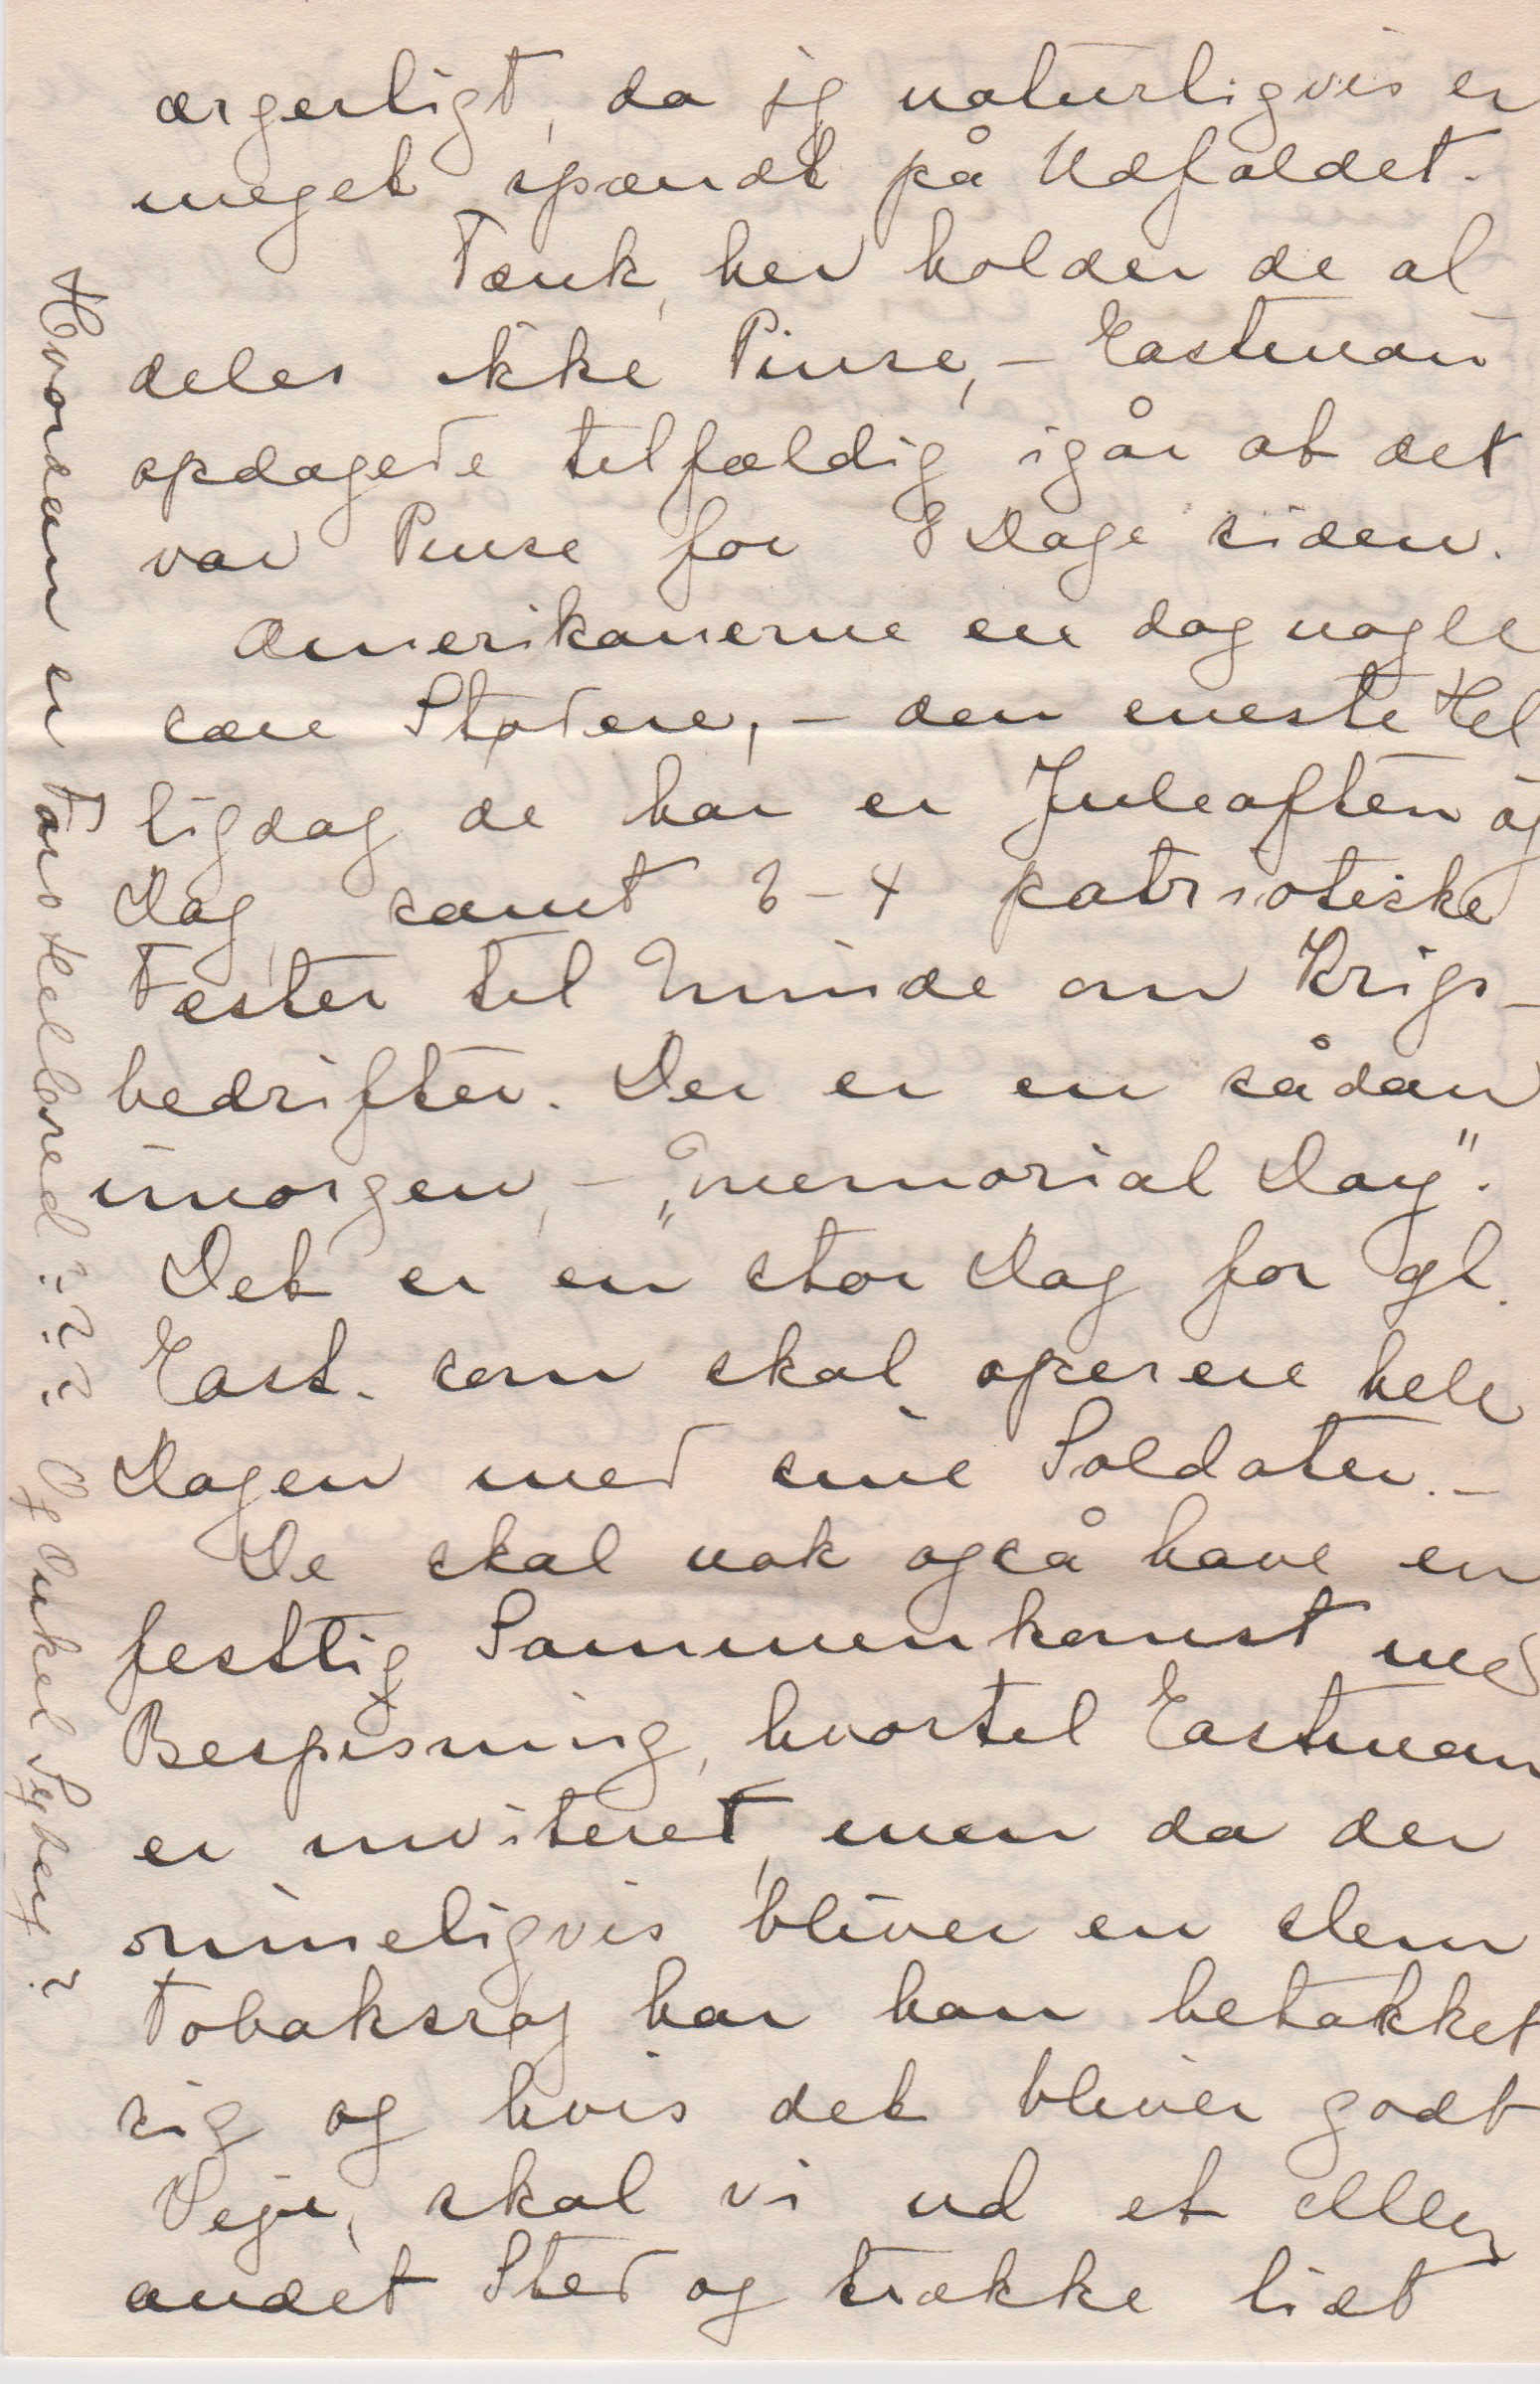 ærgerligt, da jeg naturligvis er
meget spændt på Udfaldet.
Tænk, her holder de al
deles ikke Pinse, – Eastman
opdagede tilfældig igår at det
var Pinse for 8 Dage siden.
Amerikanerne er dog nogle
sære Støderе, – den eneste Hel
ligdag de har er Juleaften og
Dag, samt 3–4 patriotiske
Fester til Minde om Krigs–
bedrifter. Der er en sådan
imorgen, – „Memorial Day".
Det er en stor Dag for gl.
East. som skal operere hele
Dagen med sine Soldater. –
De skal nok også have en
festlig Sammenkomst med
Bespisning, hvortil Eastman
er inviteret, men da der
rimeligvis bliver en slem
Tobaksrøg har han betakket
sig og hvis det bliver godt
Vejr, skal vi ud et eller
andet Sted og trække lidt
Hvordan er Fars Helbred??? Og Onkel Syberg?